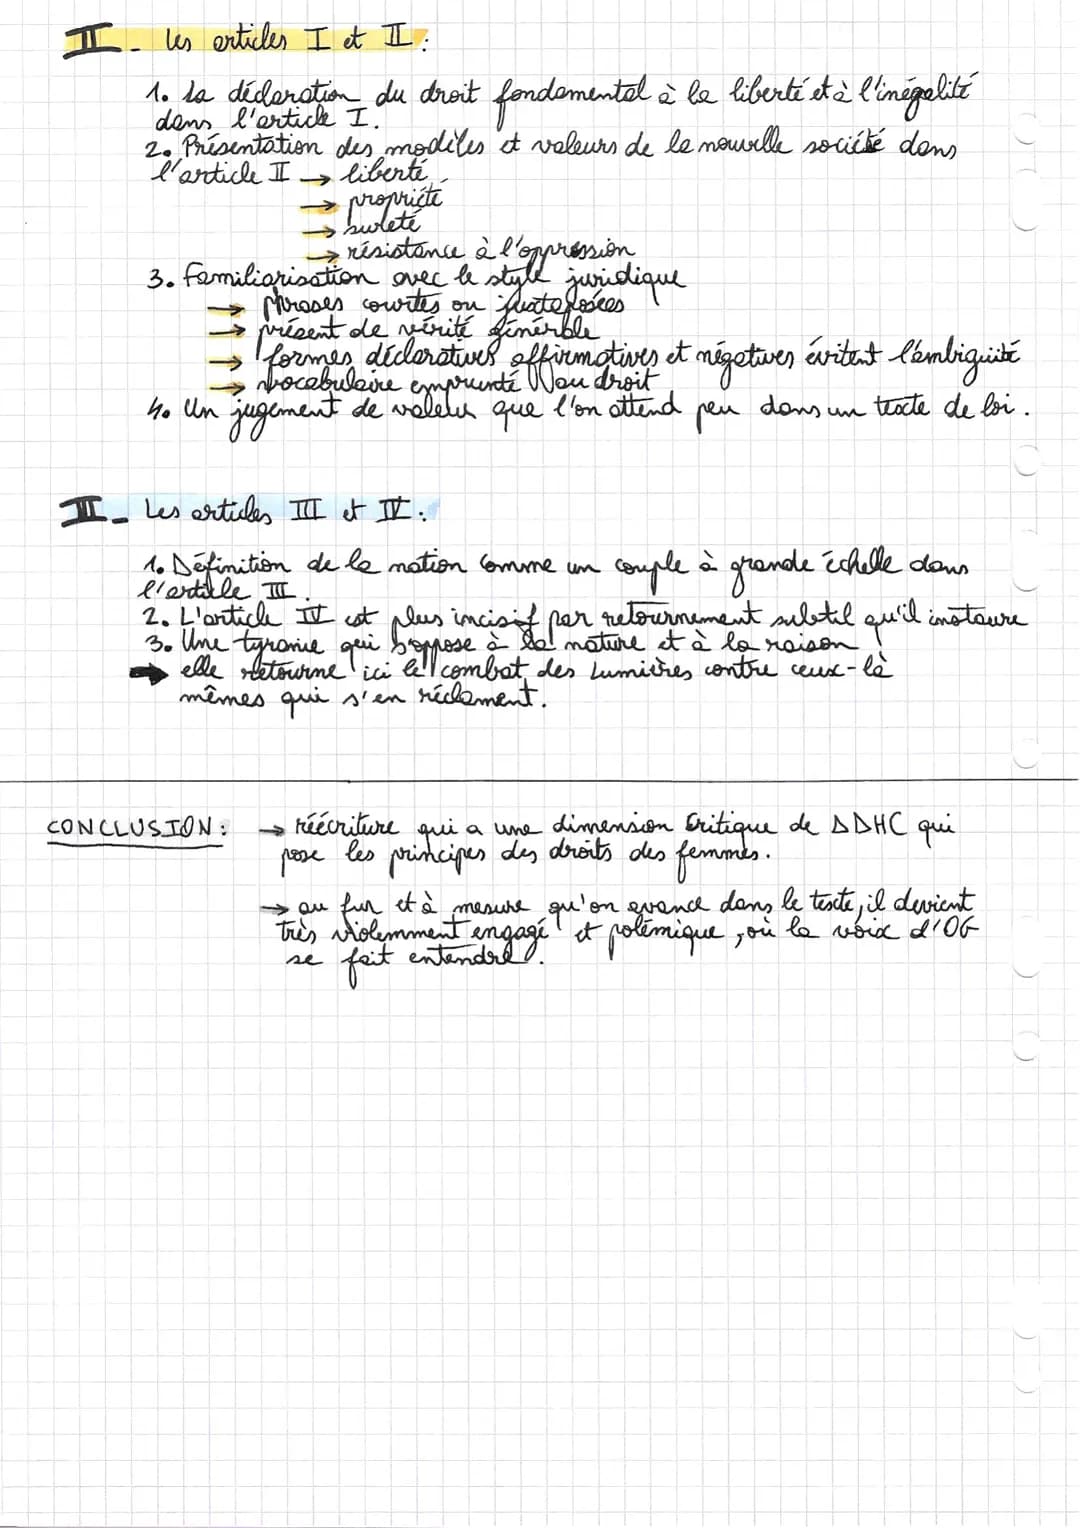 II - Les articles I et II :
1. La déclaration du droit fondamental à la liberté et à l'inégalité
dans l'article I.
2. Présentation des modèles et valeurs de la nouvelle société dans
l'article II → liberté
→ propriété
→ sureté
→ résistance à l'oppression
3. Familiarisation avec le style juridique
→ phrases courtes ou juxtaposées
→ présent de vérité générble
→ formes déclaratives affirmatives et négatives évitent l'ambiguité
→ vocabulaire emprunté au droit
4. Un jugement de valeur que l'on attend peu dans un texte de loi.
III - Les articles III et IV :
1. Définition de la nation comme un couple à grande échelle dans
l'article III.
2. L'article IV est plus incisif par retournement subtil qu'il instaure
3. Une tyranie qui s'oppose à la nature et à la raison
→ elle retourne ici le combat des Lumières contre ceux-là
mêmes qui s'en réclament.
CONCLUSION : → réécriture qui a une dimension critique de DDHC qui
pose les principes des droits des femmes.
→ au fur et à mesure qu'on avance dans le texte, il devient
très violemment engagé et polémique, où la voix d'OG
se fait entendre.